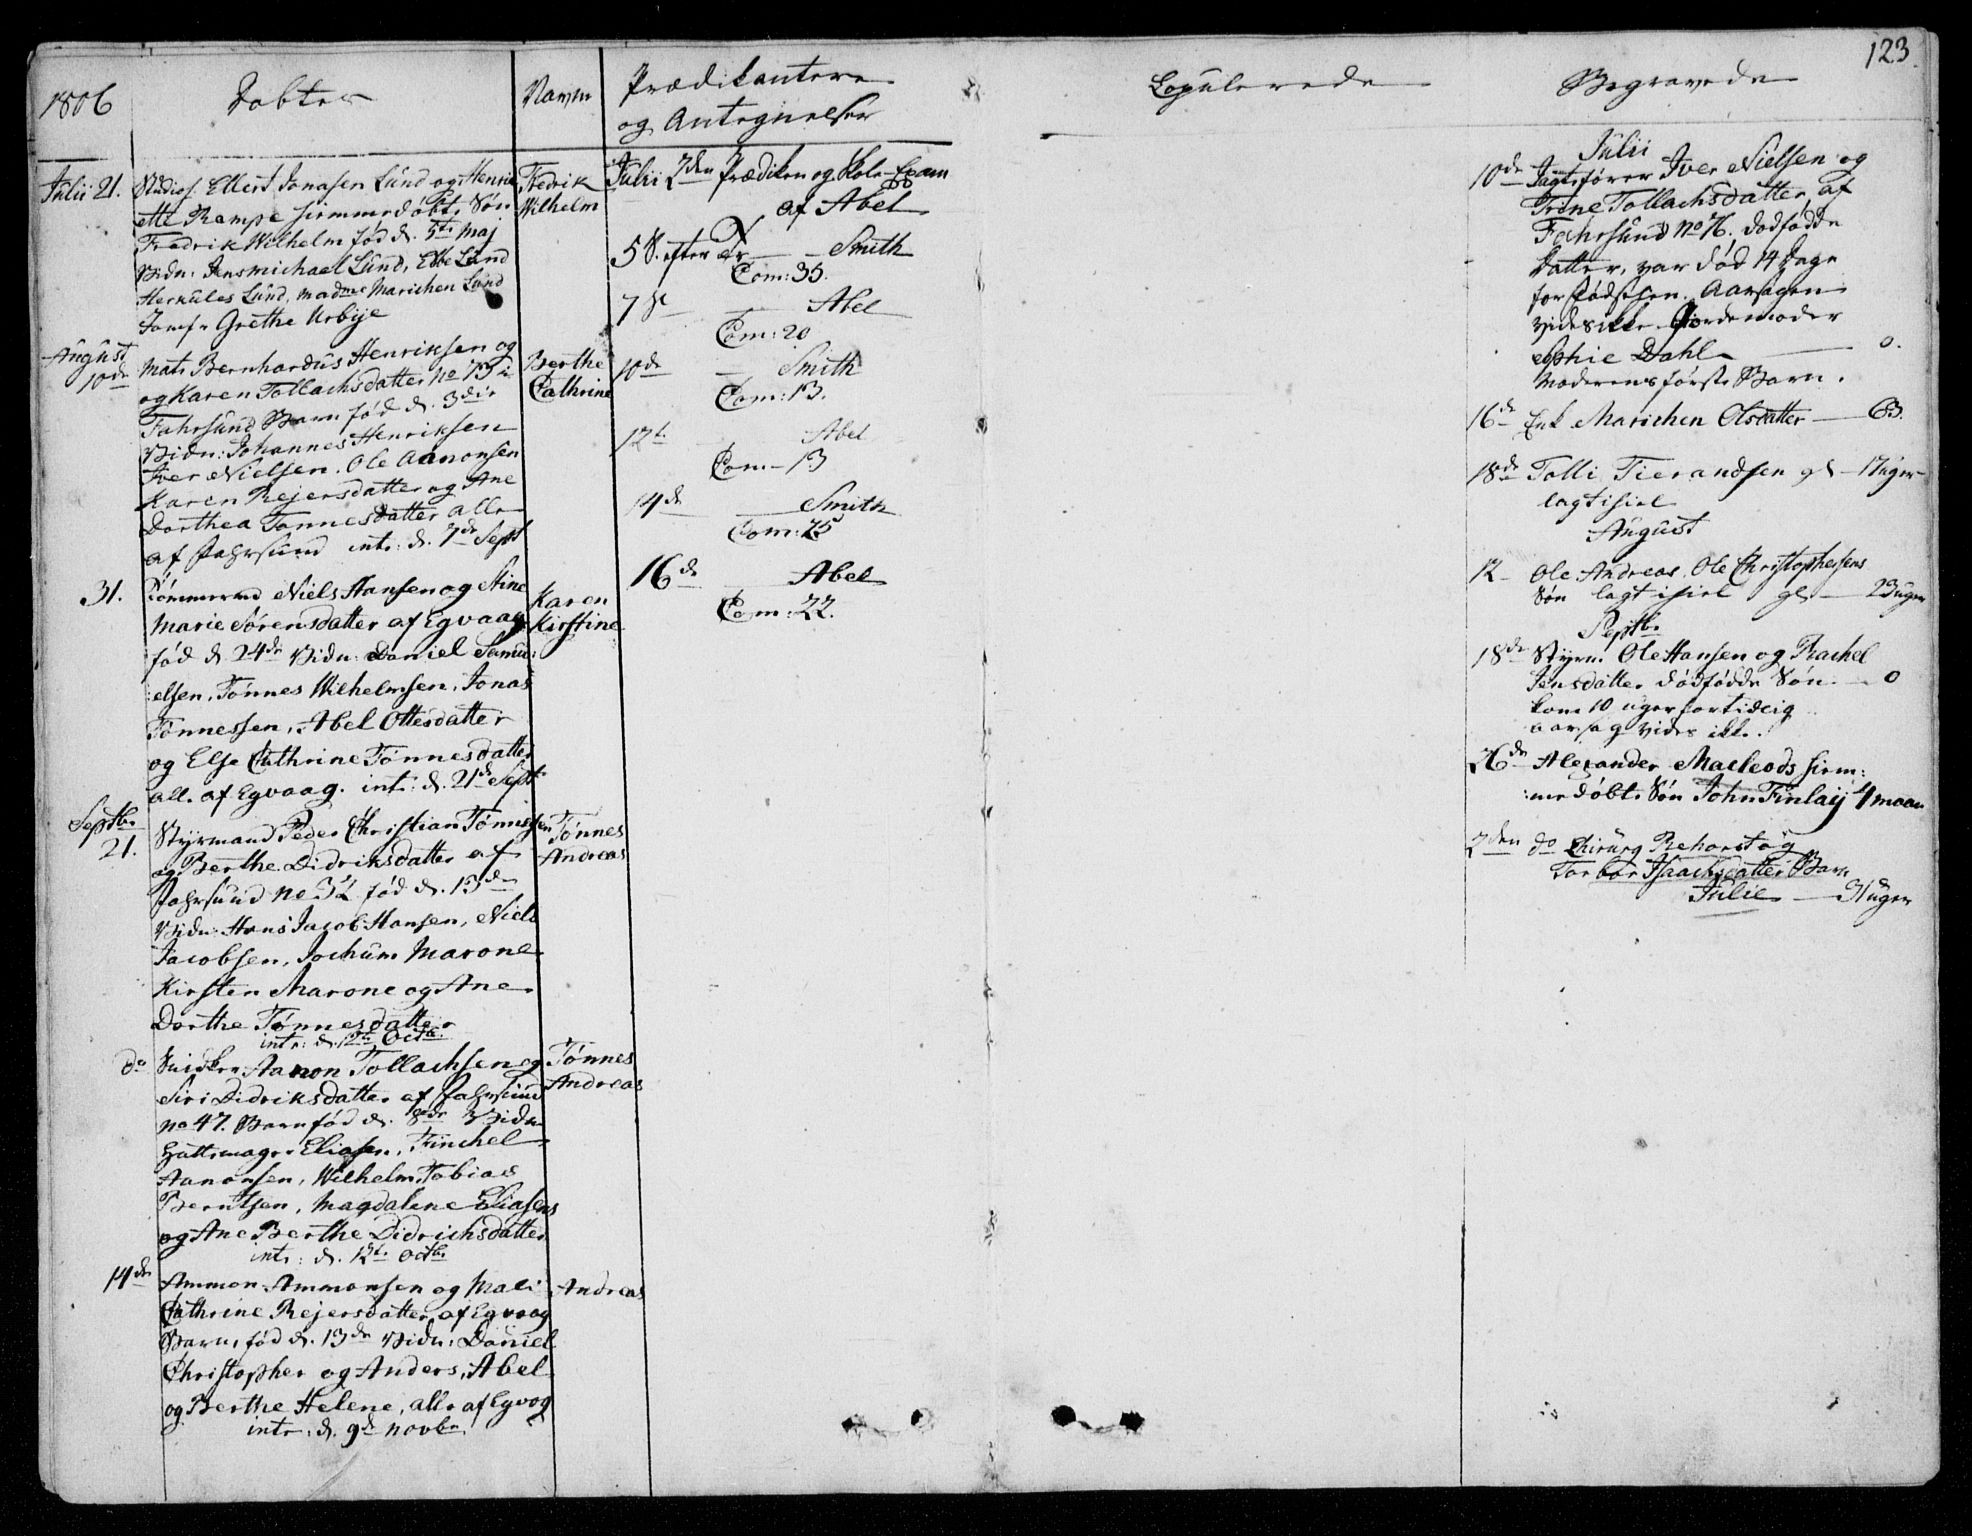 123.
1806
Døbte
Navne
Prædikantere
og Antegnelser
Copulerede
Begravede
Julii 21.
Studios. Ellert Jonasen Lund og Henri
ette Rempe hiemmedøbt Søn
Fredrik Wilhelm fød d. 5te Maj
Vidn: Jensmichael Lund, Ebbe Lund
Herkules Lund, madme Marichen Lund
Jomfr Grethe Urbye
Fredrik
Wilhelm
August
10de
Mats Bernhardus Henriksen og
og Karen Tollachsdatter No 73 i
Fahrsund Barn fød d. 3die
Vidn: Johannes Henriksen
Iver Nielsen. Ole Aanonsen
Karen Rejersdatter og Ane
Dorthea Tønnesdatter alle
af Fahrsund intr: d. 7de Sept
Berthe
Cathrine
31.
Tømmermd Niels Hansen og Stine
Marie Sørensdatter af Egvaag
fød d. 24de Vidn: Daniel Samu:
:elsen, Tønnes Wilhelmsen, Jonas
Tønnessen, Abel Ottesdatter
og Else Cathrine Tønnesdatter
alle af Egvaag. intr: d. 21de Sept
Karen
Kirstine
Septbr
21.
Styrmand Peder Christian Tønnesen
og Berthe Didriksdatter af
Fahrsund no 32 fød d. 13de
Vidn: Hans Jacob Hansen, Niels
Jacobsen, Jochum Marone
Kirsten Marone og Ane
Dorthe Tønnesdatter
intr: d. 12te Octbr.
Tønnes
Andreas
do
Snidker Aanon Tollachsen og
Siri Didriksdatter af Fahrsund
no 47. Barn fød d. 8de Vidn
Hattemager Eliasen, Finchel
Aanonsen, Wilhelm Tobias
Berntsen, Magdalene Eliasens
og Ane Berthe Didrichsdatter
intr: d. 12te Octbr.
Tønnes
Andreas
14de
Ammon Ammonsen og Mali
Cathrine Rejersdatter af Egvaag
Barn, fød d. 13de Vidn: Daniel
Christopher og Anders, Abel
og Berthe Helene, alle af Egvog
intr: d. 9de Novbr
Andreas
Julii 2den Prædiken og Skole-Exam
af Abel
5 S. efter Tr — Smith
Com: 35.
7de — Abel
Com: 20
10de — Smith
Com: 13.
12te — Abel
Com — 13
14de — Smith
Com: 25
16de — Abel
Com: 22.
Julii
10de Jagtefører Iver Nielsen og
Trine Tollachsdatter af
Fahrsund No 76. dødfødde
Datter, var død 14 Dage
for fødselen. Aarsagen
vides ikke. Giordemoder
Sophie Dahl — 0.
Moderens første Barn.
16de Enk Marichen Olsdatter — 63.
18de Tolli Tierandsen gl — 17 uger
lagt i hiel
August
12 — Ole Andreas, Ole Christophersens
Søn lagt i hiel gl — 23 uger
Septbr.
18de Styrm. Ole Hansen og Rachel
Jensdatter dødfødde Søn — 0
kom 10 uger for tideig
aarsag vides ikke.
26de Alexander Macleods hiem:
:me døbte Søn John Finlay 4 maan
2den do Chirurg Rehorst og
Torbor Isaachsdatter Barn
Julie — 31 uger